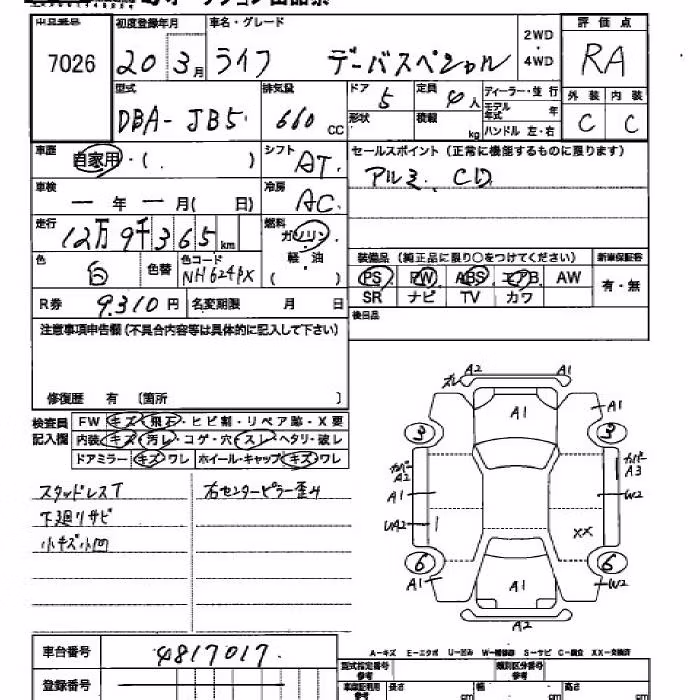 オークション出品票
出品番号 初度登録年月 車名・グレード 2WD・4WD 評価点
7026 20 3月 ライフ デーバスペシャル RA
型式 排気量 ドア 5 定員 4人 ディーラー・並行 外装 内装
DBA-JB5 660 CC 形状 積載 kg モデル年式 年 ハンドル 左・右 C C
車歴 自家用・( ) シフト AT. セールスポイント (正常に機能するものに限ります)
アルミ. CD
車検 ー年ー月( 日) 冷房 AC.
走行 12万9千365km 燃料 ガソリン・軽・油 ( )
色 白 色替 色コード NH624PX
装備品 (純正品に限り○をつけてください) 新車保証書
PS PW ABS エアB AW 有・無
SR ナビ TV カワ
R券 9.310円 名変期限 月 日
後日品
注意事項申告欄 (不具合内容等は具体的に記入して下さい)
修復歴 有 〔箇所 〕
検査員記入欄 FW キズ・飛石・ヒビ割・リペア跡・X要
内装 キズ・汚レ・コゲ・穴・スレ・ヘタリ・破レ
ドアミラー キズ・ワレ ホイール・キャップ キズ・ワレ
スタッドレスT 右センターピラー歪み
下廻リサビ
小キズ小凹
ズレ A2 A1
A1 A1
3 3
カバー A2 カバー A3
A1 W2
UA2 XX
6 6
A1 A1 W2
A2
A-キズ E-エクボ U-凹み W-補修跡 S-サビ C-腐立 XX-交換済
車台番号 4817017.
型式指定番号 参考 類別区分番号 参考
登録番号 車庫証明用 参考 長さ cm 幅 cm 高さ cm